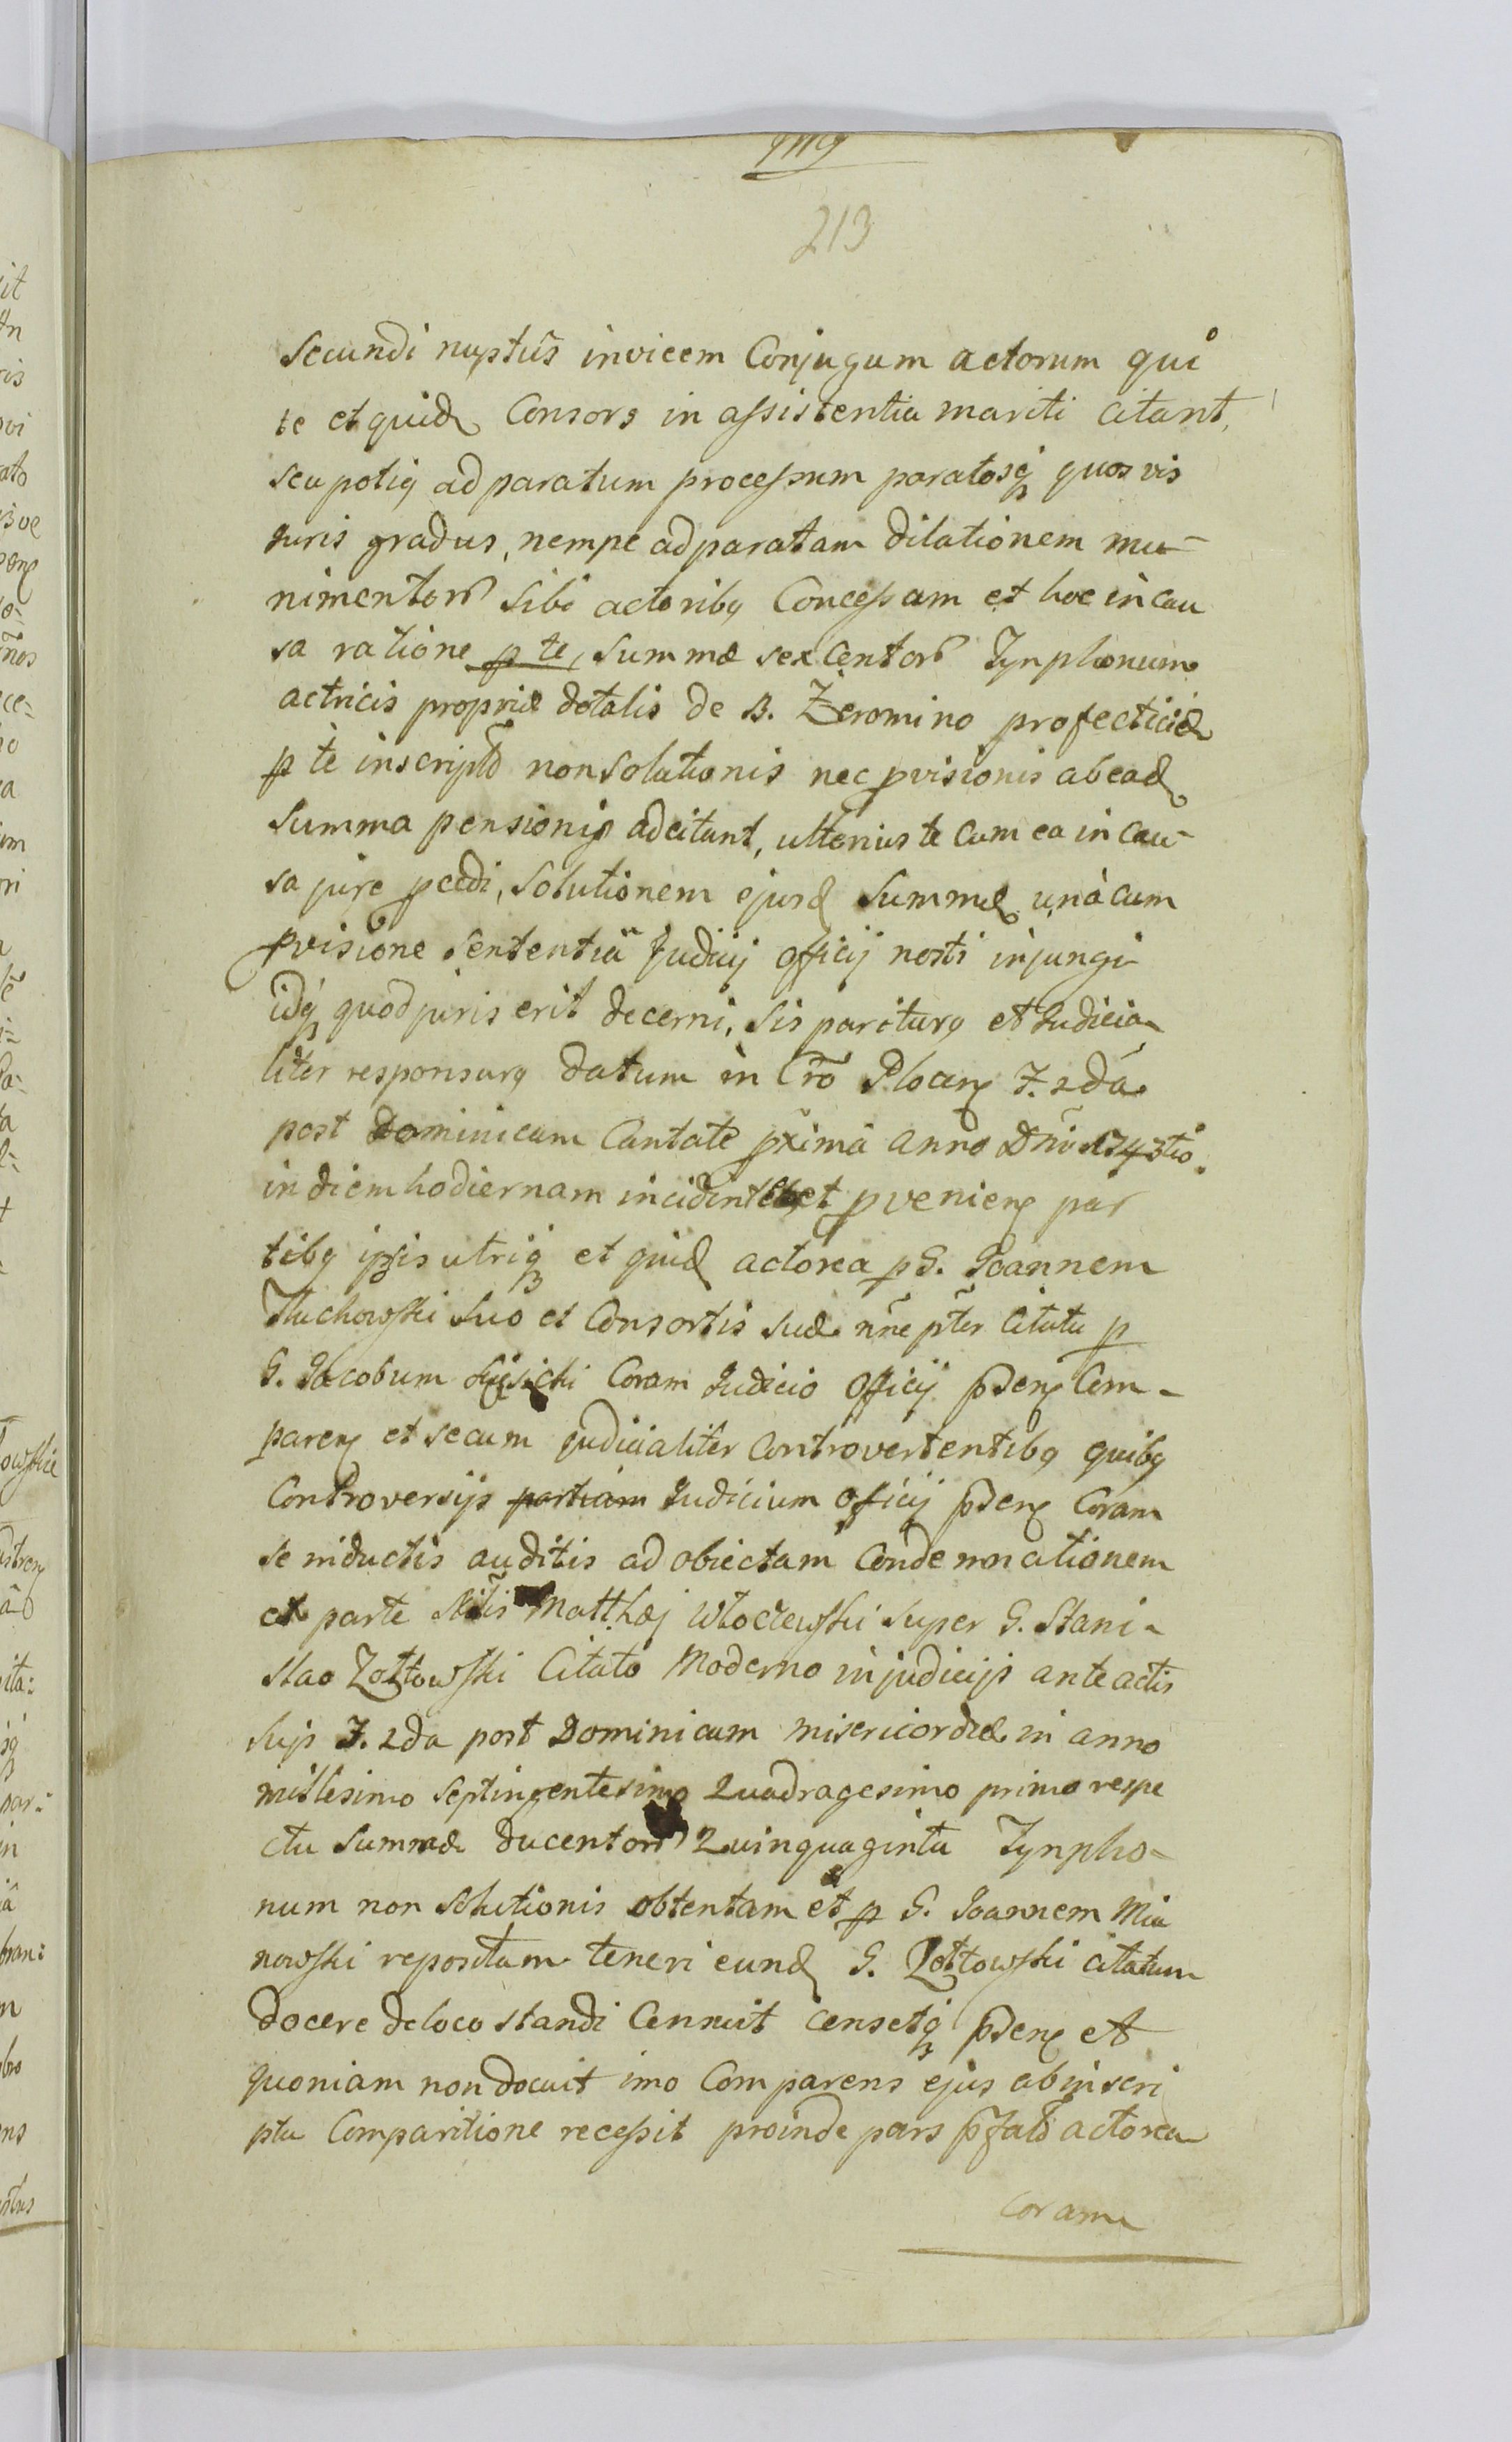 213
Secundi nuptus invicem Conjugum actorum qui
te et quid Consors in assistentia mariti citant,
seu potiq ad paratum processum paratosq quos vis
Juris gradus, nempe ad paratam Dilationem mu-
nimentor Sibi actoribq Concessam et hoc in cau
sa ratione p te, summæ sex Centor Tynphonum
actricis propriæ dotalis de B. Żeromino profecticiæ
p te inscripto non solutionis nec pvisionis ab ead
Summa pensionis adcitant, ulterius te cum ea in cau-
sa jure pcedi, solutionem ejusd Summæ unà cum
pvisione sententiâ Judicij officij nostri injungi
idq quod juris erit decerni, sis pariturq et Judicia
liter responsurq Datum in Cro Plocen F. 2da
post Dominicam Cantate pximâ anno Dni 1743tio
in diem hodiernam incident et pvenien par
tibq ipsis utrisq et quid actorea p G. Joannem
Tłuchowski suo et Consortis suæ nne pter citatu p
G. Jacobum Coram Judicio Officij pden Com-
paren et secum judicialiter Controvertentibq quibq
Controversijs partium Judicium officij pden Coram
se inductis auditis ad obiectam Condemnationem
ex parte Matthæj Włoczewski super G. Stani-
slao Zołtowski Citato Moderno in judicijs ante actis
suis F. 2da post Dominicam misericordiæ in anno
millesimo septingentesimo Quadragesimo primo respe
ctu summæ ducentor Quinquaginta Tynpho-
num non solutionis obtentam et p G. Joannem Mia
nowski repositam teneri eund G. Zołtowski citatum
docere de loco standi Censuit censetq pden et
quoniam non docuit imo Comparens ejus ab inscri
pta Comparitione recessit proinde pars pfato actorea
coram